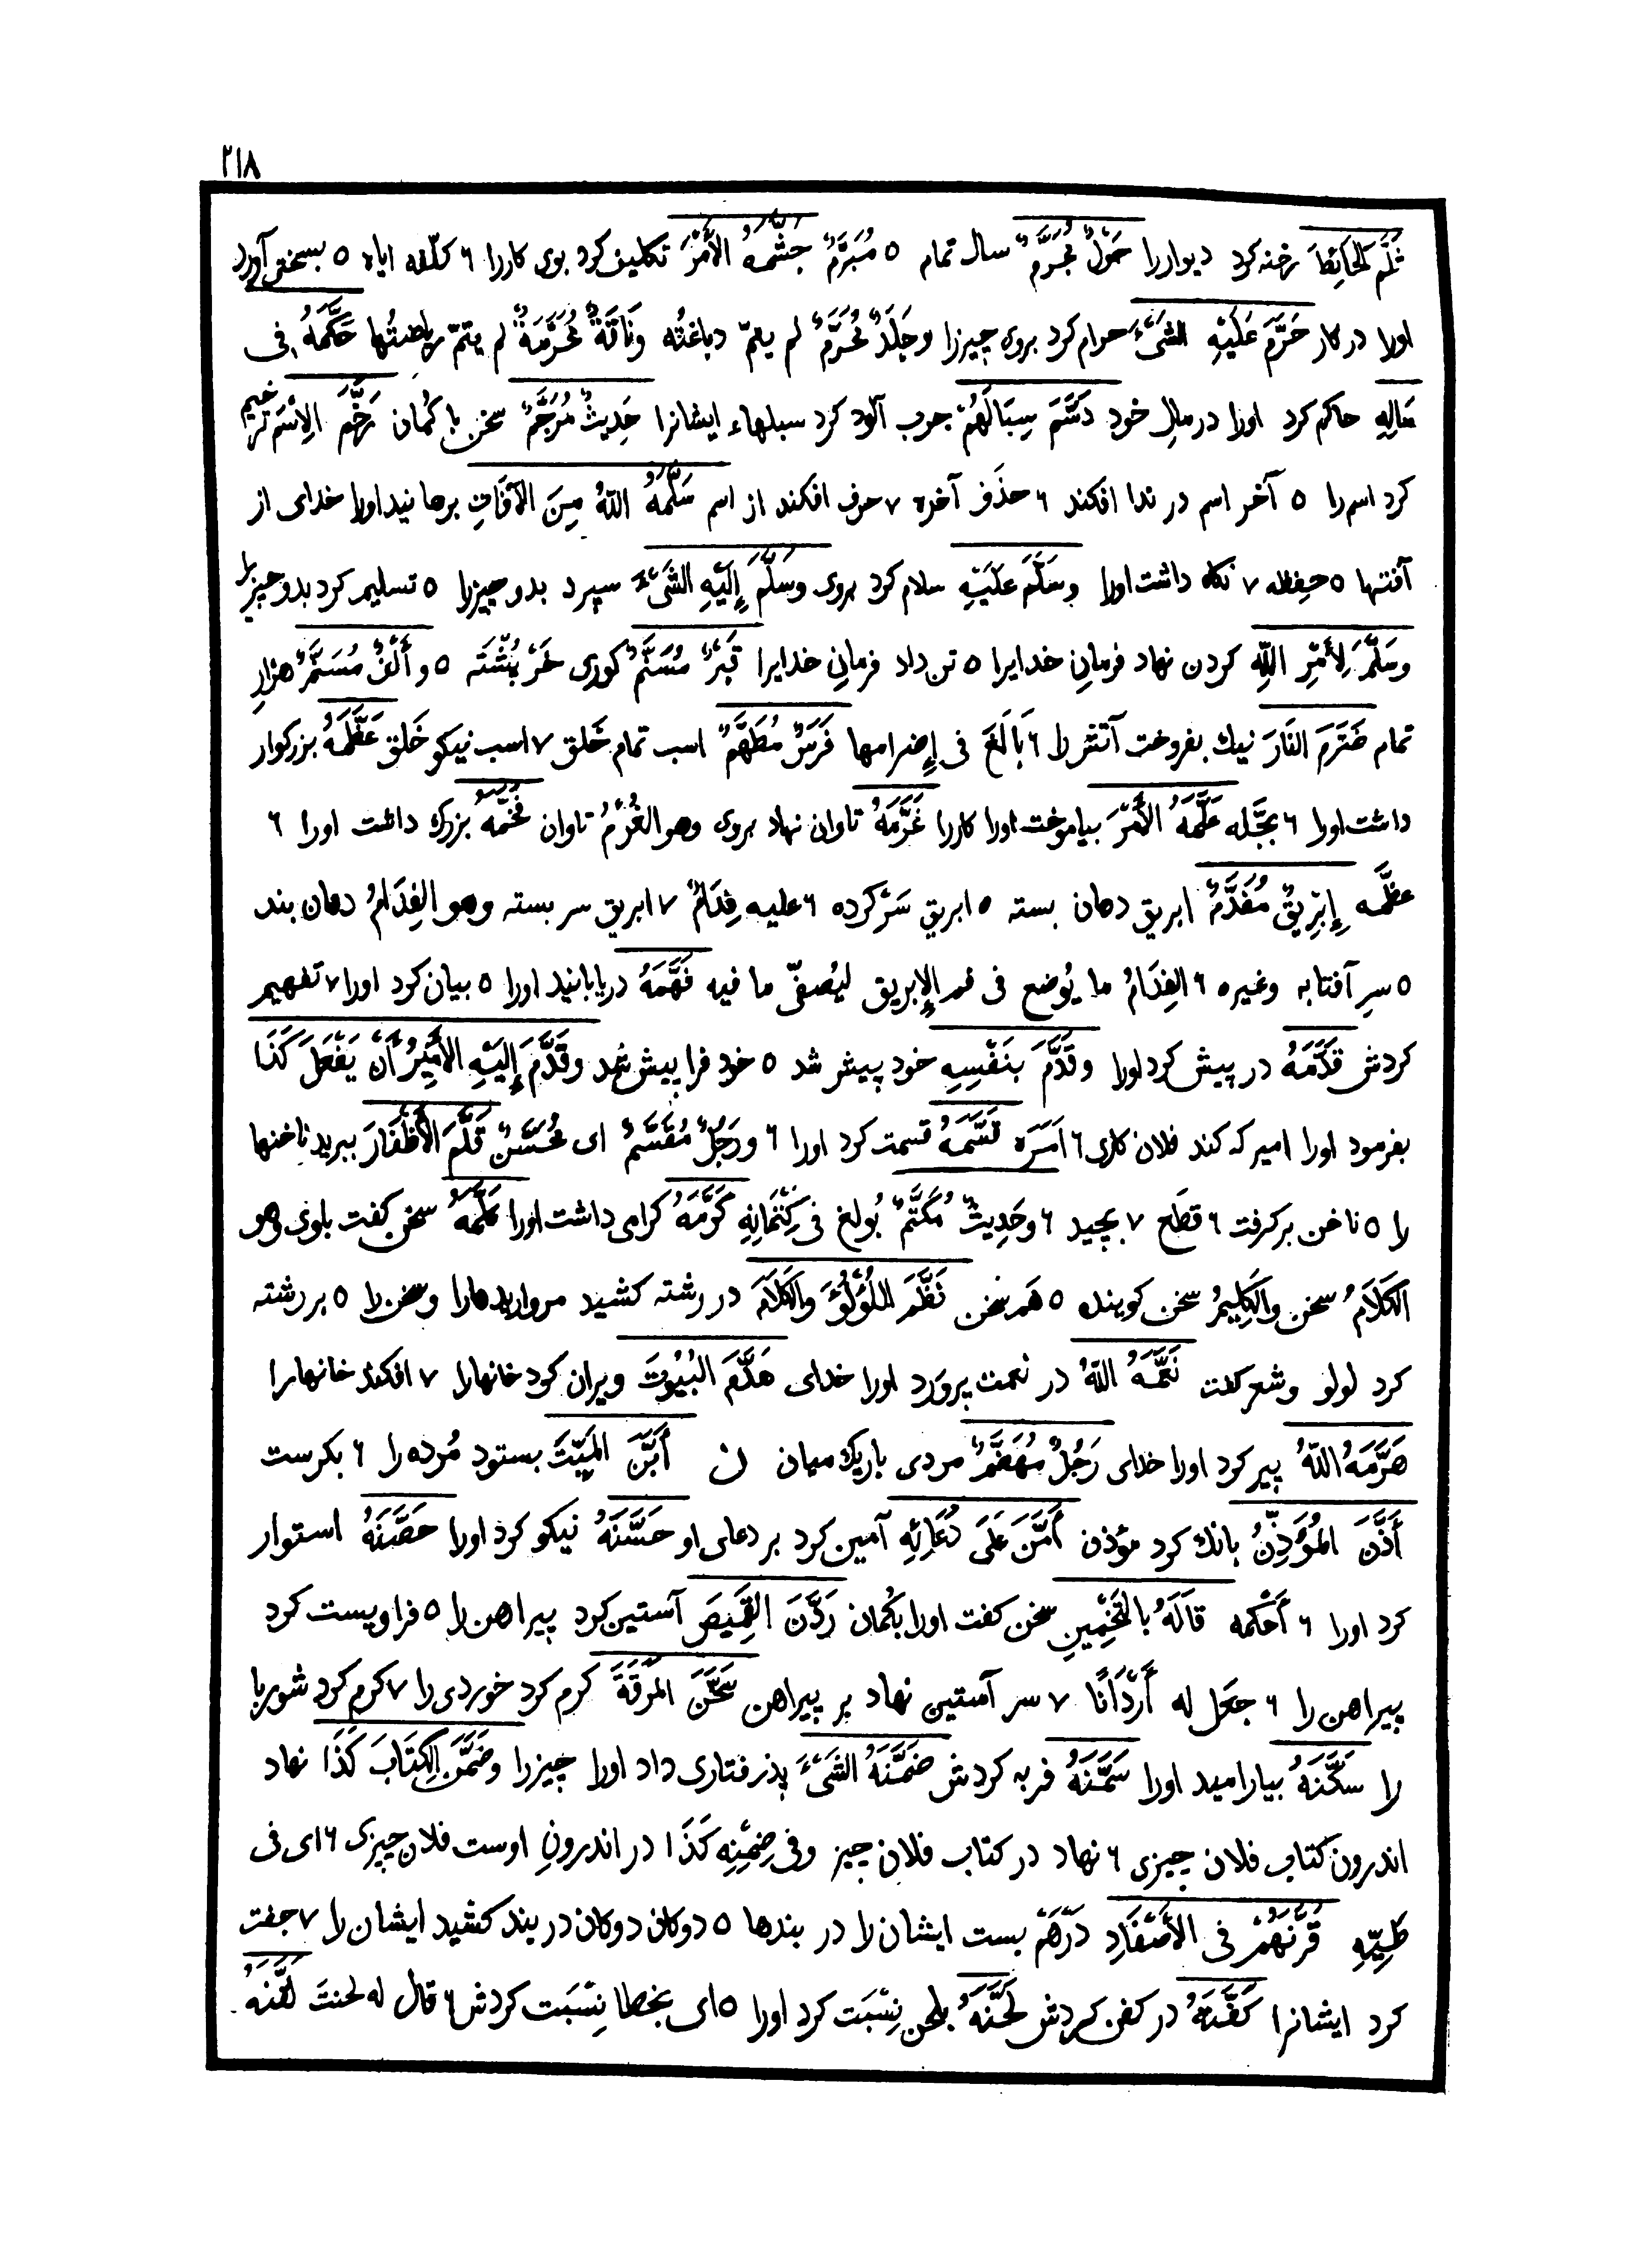 ٢١٨
ثَلَّمَ الحَائِطَ رخنه کرد دیواررا حَوْلٌ مُجَرَّمٌ سال تمام ٥ مُبَرَّمٌ جَشَّمَهُ الأَمْرَ تکلیف کرد بوی کاررا ٦ کلّفه ایاه ٥ بسختی آورد
اورا در کار حَرَّمَ عَلَيْهِ الشَيْءَ حرام کرد بروی چیزرا وجِلْدٌ مُحَرَّمٌ لم یتمّ دباغتُه وَنَاقَةٌ مُحَرَّمَةٌ لم یتمّ ریاضتُها حَكَّمَهُ فِى
مَالِهِ حاکم کرد اورا در مال خود دَسَّمَ سِبَالَهُمْ چرب آلود کرد سبلهاء ایشانرا حَدِيثٌ مُرَجَّمٌ سخن با کمان رَخَّمَ الِاسْمَ ترخیم
کرد اسم را ٥ آخر اسم در ندا افکند ٦ حذَف آخره ٧ حرف افکند از اسم سَلَّمَهُ اللّهُ مِنَ الآفَاتِ برهانید اورا خدای از
آفتها ٥ حِفظه ٧ نکاه داشت اورا وسَلَّمَ عَلَيْهِ سلام کرد بروی وسَلَّمَ إِلَيْهِ الشَيْءَ سپرد بدو چیزرا ٥ تسلیم کرد بدو چیزرا
وسَلَّمَ لِأَمْرِ اللّهِ کردن نهاد فرمانِ خدایرا ٥ تن داد فرمانِ خدایرا قَبْرٌ مُسَنَّمٌ کوری خَرْ پُشْتَه ٥ وأَلْفٌ مُسَنَّمٌ هزارِ
تمام ضَرَّمَ النَارَ نیك بفروخت آتش را ٦ بَالَغَ فی إِضرامها فَرَسٌ مُطَهَّمٌ اسب تمام خَلق ٧ اسب نیکو خَلق عَظَّمَهُ بزرکوار
داشت اورا ٦ بجَّله عَلَّمَهُ الأَمْرَ بیاموخت اورا کاررا غَرَّمَهُ تاوان نهاد بروی وهو الغُرْمُ تاوان فَخَّمَهُ بزرك داشت اورا ٦
عظَّمه إِبْرِيقٌ مُفَدَّمٌ ابریق دهان بسته ٥ ابریق سَرْ کرده ٦ علیه فِدَامٌ ٧ ابریق سر بسته وهو الفِدَامُ دهان بند
٥ سرِ آفتابه وغیره ٦ الفِدَامُ ما یُوضع فی فم الإِبریق لیُصفّی ما فیه فَهَّمَهُ دریابانید اورا ٥ بیان کرد اورا ٧ تفهیم
کردش قَدَّمَهُ در پیش کرد اورا وقَدَّمَ بنَفْسِهِ خود پیشر شد ٥ خود فرا پیش شد وقَدَّمَ إِلَيْهِ الأَمِيرُ أَنْ يَفْعَلَ كَذَا
بفرمود اورا امیر که کند فلان کاری ٦ اَمَرَه قَسَّمَهُ قسمت کرد اورا ٦ ورَجُلٌ مُقَسَّمٌ ای مُحَسَّنٌ قَلَّمَ الأَظْفَارَ ببرید ناخنها
را ٥ ناخن برکرفت ٦ قطَع ٧ بچید ٦ وحَدِيثٌ مُكَتَّمٌ بُولغ فی كِتْمَانِهِ كَرَّمَهُ کرامی داشت اورا كَلَّمَهُ سخن کفت باوی وهو
الكَلَامُ سخن والكَلِيمُ سخن کوینده ٥ هَم سخن نَظَّمَ اللُؤْلُؤَ والكَلَامَ در رشته کشید مرواریدهارا وسخن را ٥ بر رشته
کرد لولو وشعر کفت نَعَّمَهُ اللّهُ در نعمت پرورد اورا خدای هَدَّمَ البُيُوتَ ویران کرد خانهارا ٧ افکند خانهارا
هَرَّمَهُ اللّهُ پیر کرد اورا خدای رَجُلٌ مُهَضَّمٌ مردی باریك میان ن أَبَّنَ المَيِّتَ بستود مُرده را ٦ بکرست
أَذَّنَ المُؤَذِّنُ بانك کرد مؤذن أَمَّنَ عَلَى دُعَائِهِ آمین کرد بر دعای او حَسَّنَهُ نیکو کرد اورا حَصَّنَهُ استوار
کرد اورا ٦ أَحْكمه قَالَهُ بالتَخْمِينِ سخن کفت اورا بکُمان رَدَّنَ القَمِيصَ آستین کرد پیراهن را ٥ فراویست کرد
پیراهن را ٦ جعَل له أَرْدَانًا ٧ سر آستین نهاد بر پیراهن سَخَّنَ المَرَقَةَ کرم کرد خوردی را ٧ کرم کرد شوربا
را سَكَّنَهُ بیارامید اورا سَمَّنَهُ فربه کردش ضَمَّنَهُ الشَيْءَ پذرفتاری داد اورا چیزرا وضَمَّنَ الكِتَابَ كَذَا نهاد
اندرون کتاب فلان چیزی ٦ نهاد در کتاب فلان چیز وفی ضِمْنِهِ كَذَا در اندرونِ اوست فلان چیزی ٦ ای فی
طَيِّهِ قَرَّنَهُمْ فِى الأَصْفَادِ دَرْهَمْ بست ایشان را در بندها ٥ دوکان دوکان در بند کشید ایشان را ٧ جفت
کرد ایشانرا كَفَّنَهُ در کفن کردش لَحَّنَهُ بلحن نِسْبَت کرد اورا ٥ ای بخطا نِسْبَت کردش ٦ قال له لحنتَ لَقَّنَهُ